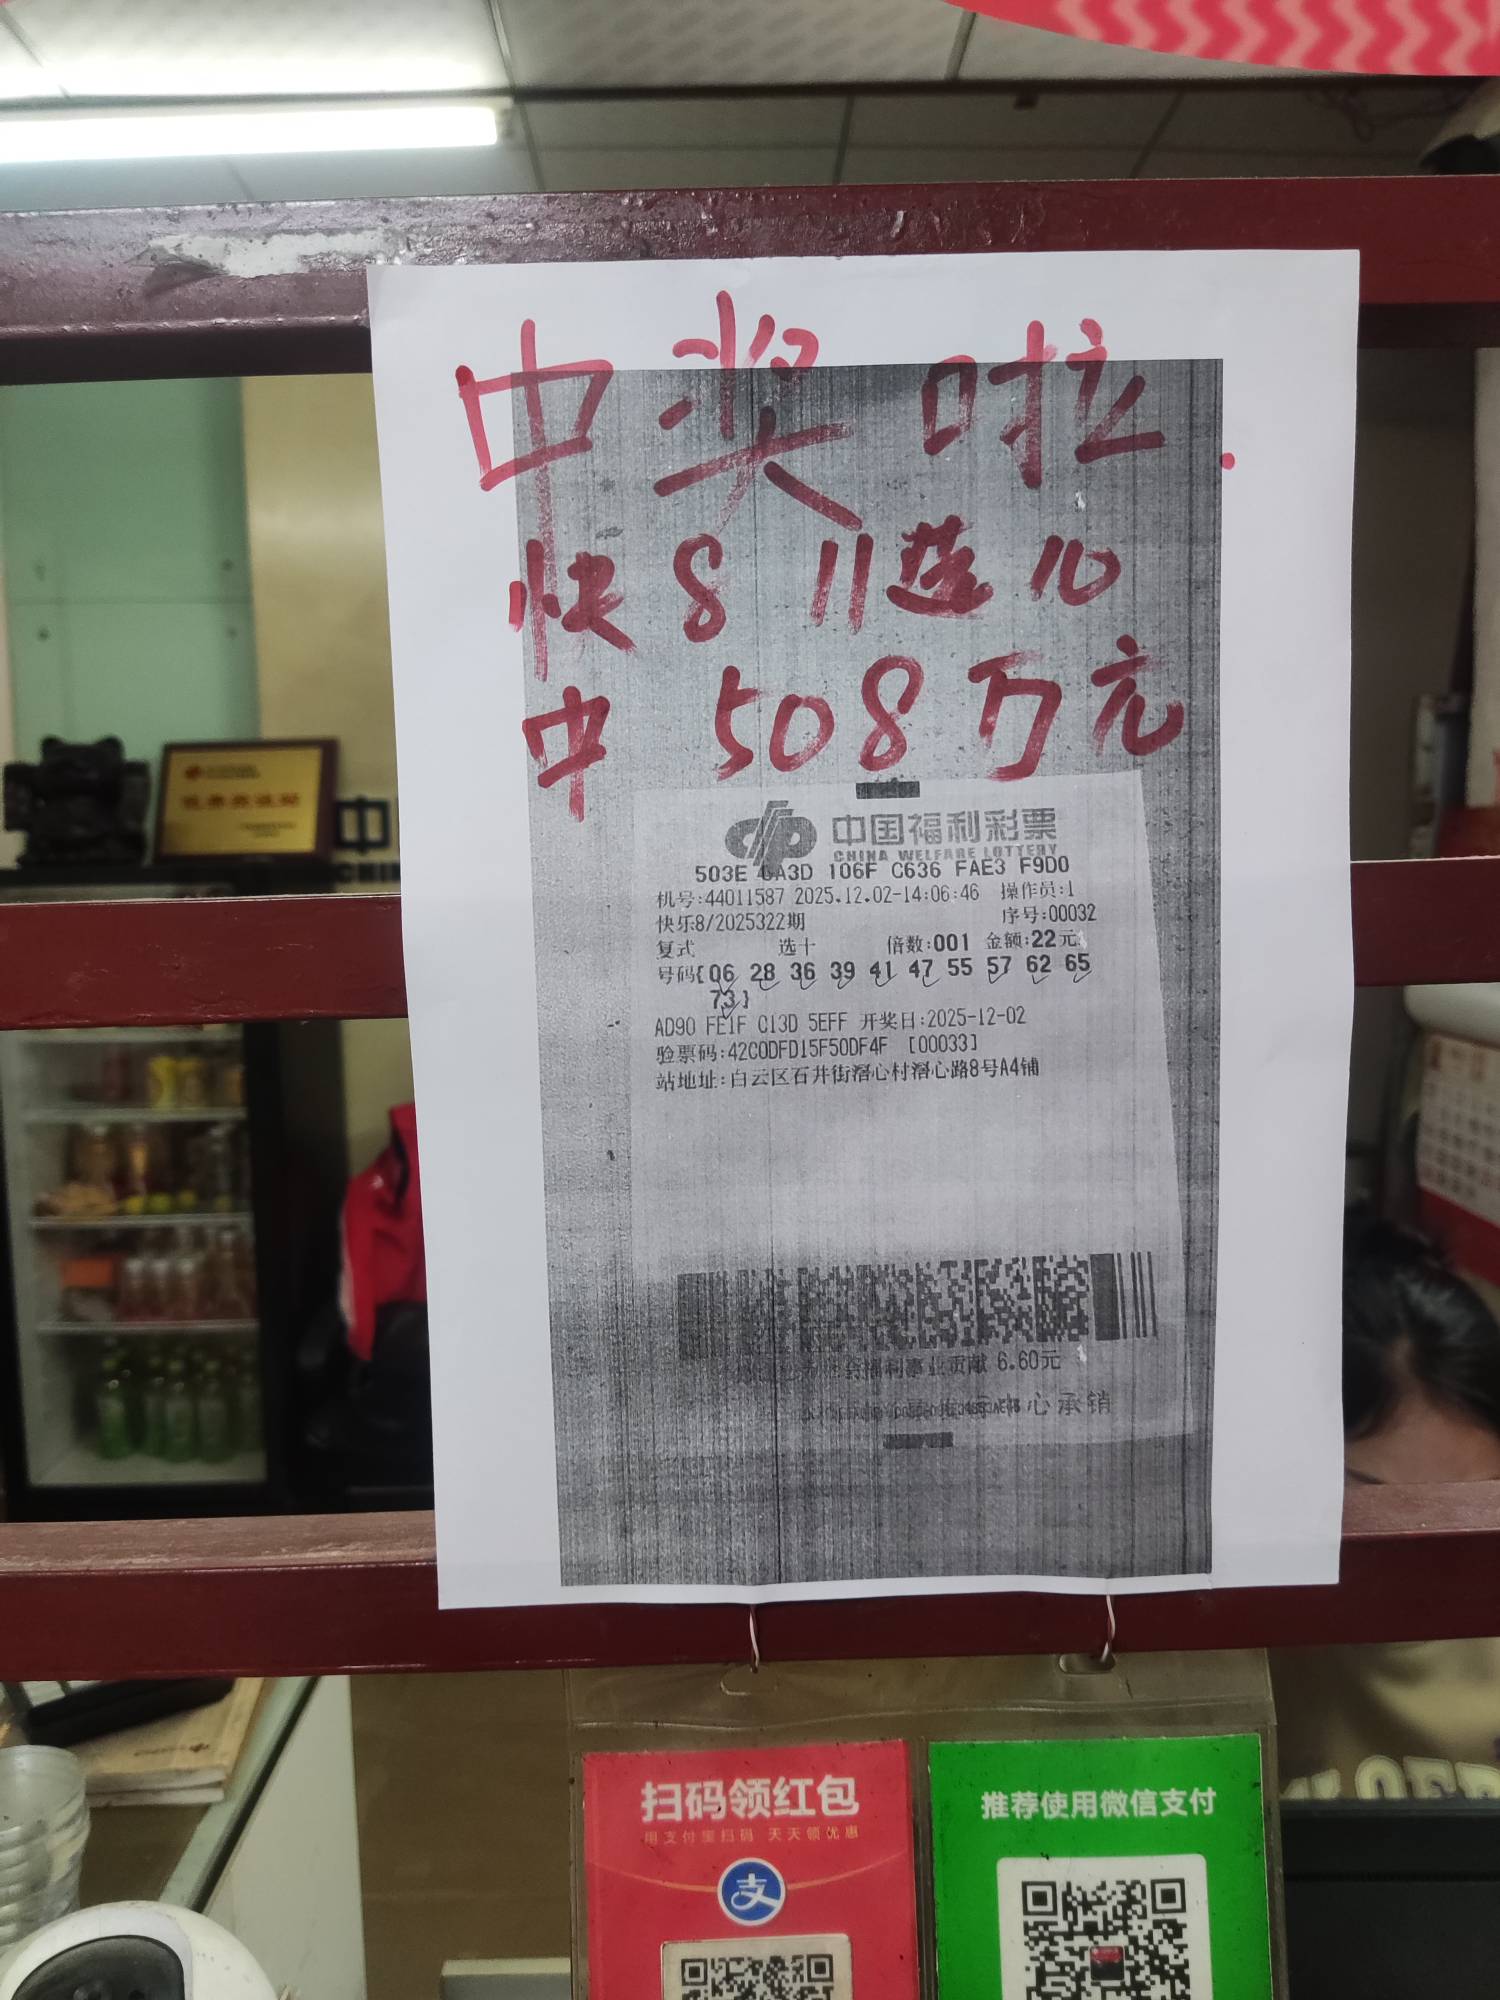 中奖啦.
快8 11选10
中 508万元
中国福利彩票
CHINA WELFARE LOTTERY
503E 6A3D 106F C636 FAE3 F9D0
机号:44011587 2025.12.02-14:06:46 操作员:1
快乐8/2025322期 序号:00032
复式 选十 倍数:001 金额:22元
号码{06 28 36 39 41 47 55 57 62 65
73}
AD90 FE1F C13D 5EFF 开奖日:2025-12-02
验票码:42C0DFD15F50DF4F [00033]
站地址:白云区石井街滘心村滘心路8号A4铺
福利事业贡献 6.60元
中心承销
扫码领红包
用支付宝扫码 天天领优惠
支
推荐使用微信支付